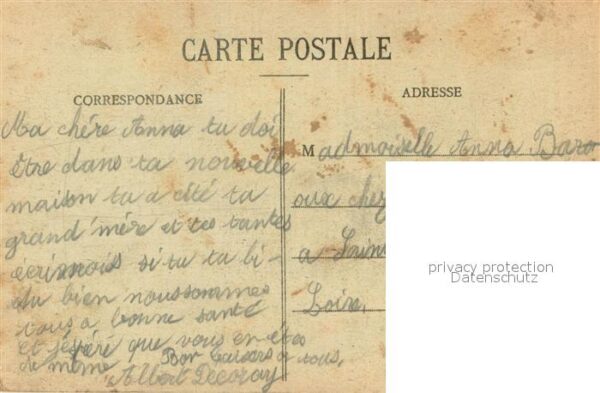 CARTE POSTALE
CORRESPONDANCE
Ma chére Anna tu doi
être dans ta nouvelle
maison tu a cité ta
grand'mére et tes tantes
écri mois si tu ta bi-
du bien nous sommes
tous a bonne santé
et j'éspéré que vous en êtes
de même Bon baisers a tous,
Albert Decoray
ADRESSE
Madmoiselle Anna Baro
oux chez
a Sain
Loire,
privacy protection
Datenschutz